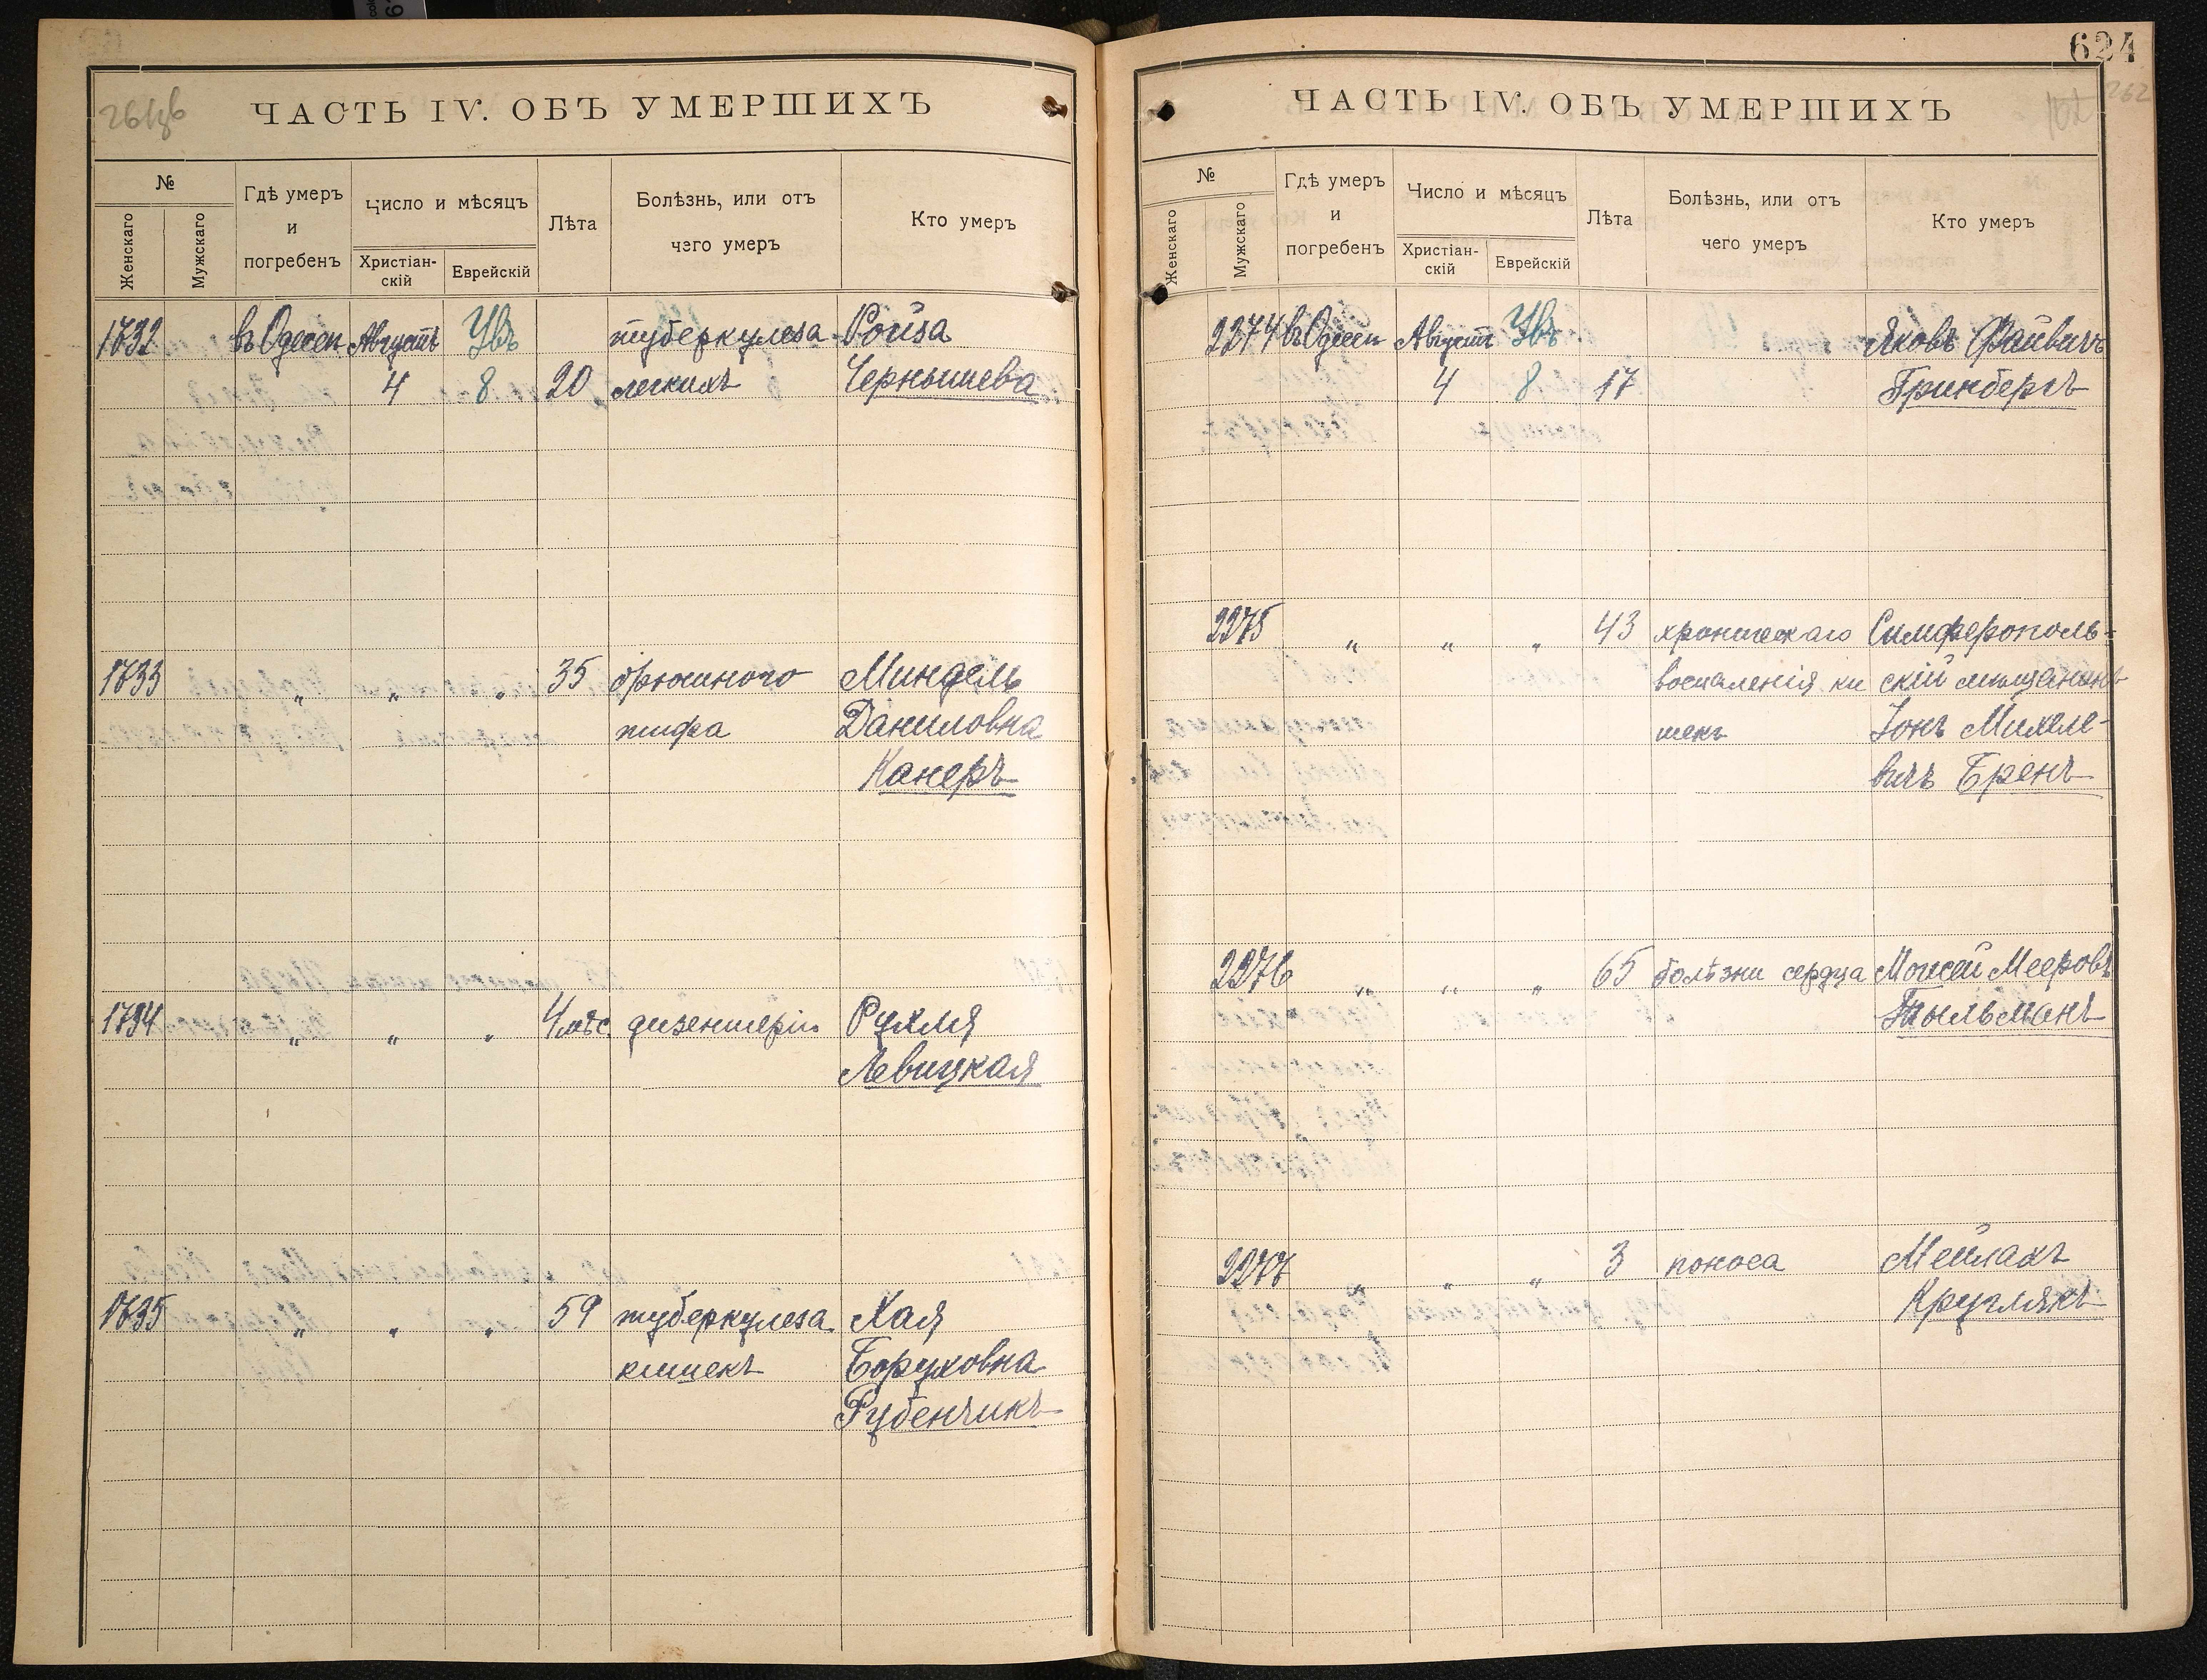 261об
ЧАСТЬ IV. ОБЪ УМЕРШИХЪ
№
Женскаго
Мужскаго
Гдѣ умеръ
и
погребенъ
Число и мѣсяцъ
Христіан-
скій
Еврейскій
Лѣта
Болѣзнь, или отъ
чего умеръ
Кто умеръ
1732 въ Одессѣ Августъ Увъ туберкулеза Ройза
4 8 20 легкихъ Чернышева
1733 " " " 35 брюшного Миндель
тифа Даниловна
Канеръ
1734 " " " 4 мѣс. дизентеріи Рухля
Левицкая
1735 " " " 59 туберкулеза Хая
кишекъ Боруховна
Рубенчикъ
624
262
ЧАСТЬ IV. ОБЪ УМЕРШИХЪ
№
Женскаго
Мужскаго
Гдѣ умеръ
и
погребенъ
Число и мѣсяцъ
Христіан-
скій
Еврейскій
Лѣта
Болѣзнь, или отъ
чего умеръ
Кто умеръ
2274 въ Одессѣ Августъ Увъ Яковъ Файвичъ
4 8 17 Гринбергъ
2275 " " " 43 хроническаго Симферополь-
воспаленія ки скій мѣщанинъ
шекъ Іонъ Михеле-
вичъ Бренъ
2276 " " " 65 болѣзни сердца Моисей Мееровъ
Тыльманъ
2277 " " " 3 поноса Мейлахъ
Круглякъ